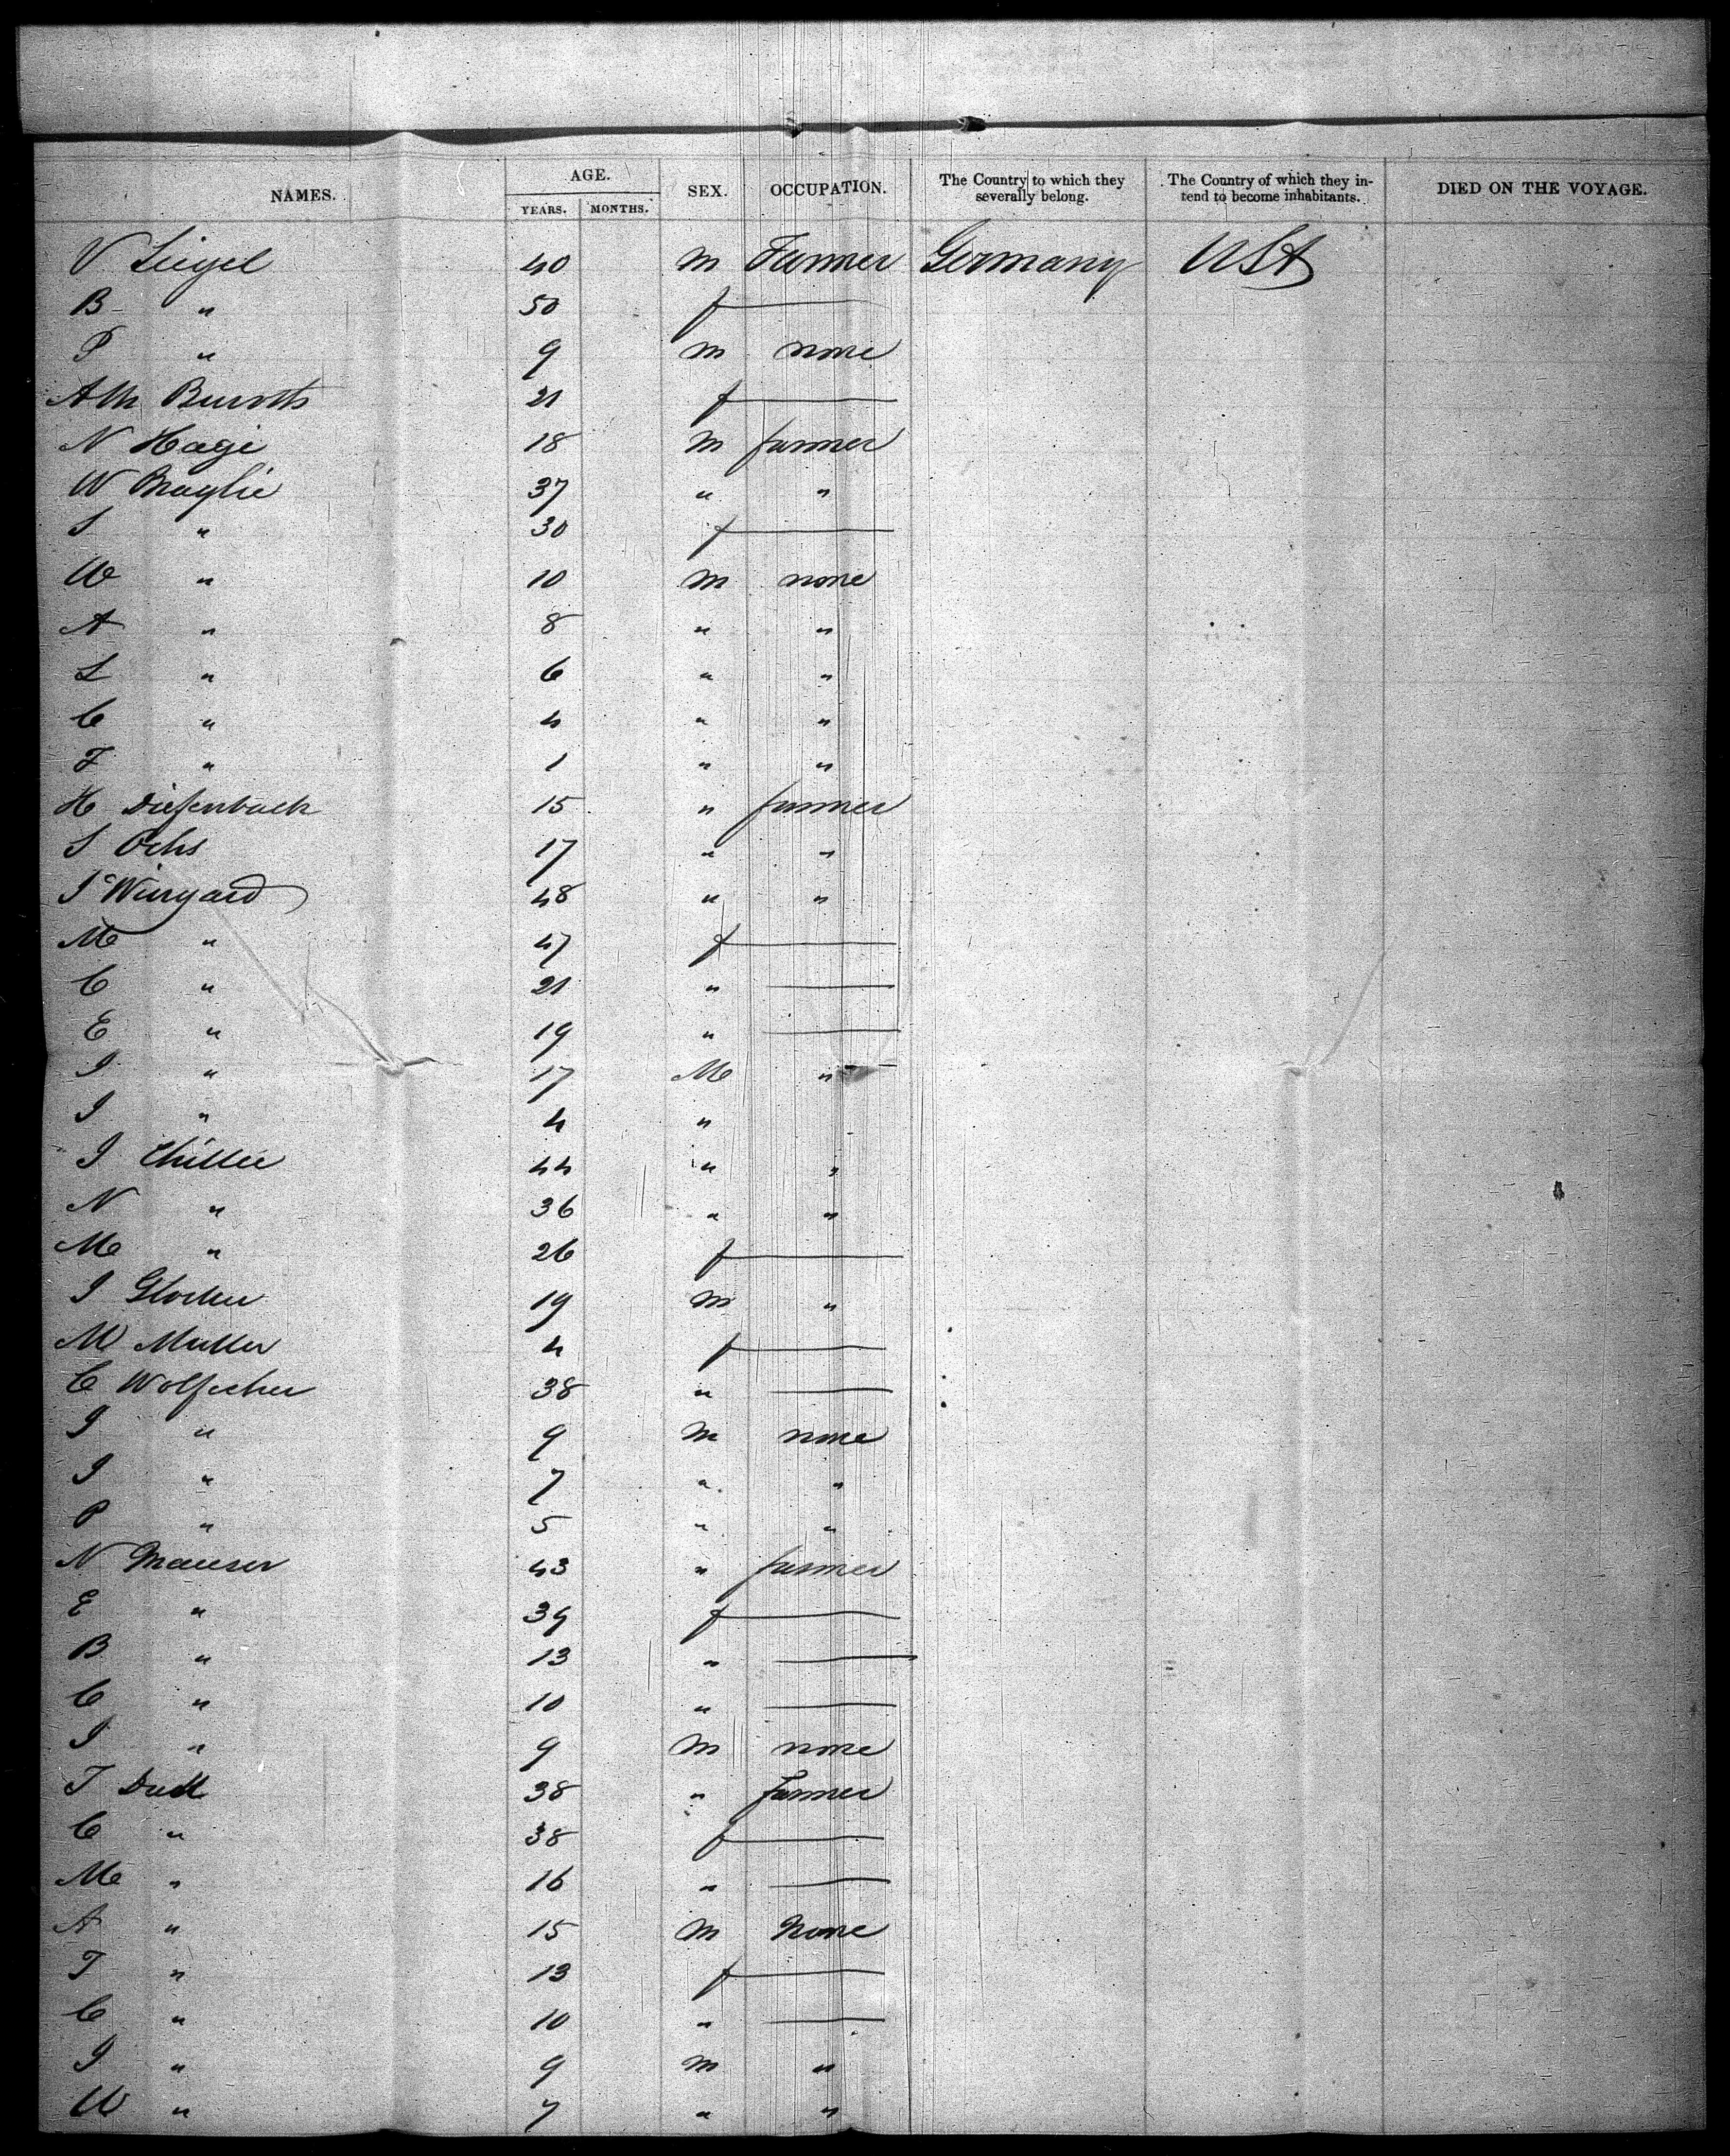 NAMES. AGE. SEX. OCCUPATION. The Country to which they severally belong. The Country of which they intend to become inhabitants. DIED ON THE VOYAGE.
YEARS. MONTHS.
V Liegel 40 m Farmer Germany USA
B " 50 f —
P " 9 m none
21 f —
N Hage 18 m farmer
W 37 " "
S " 30 f —
W " 10 m none
A " 8 " "
L " 6 " "
C " 4 " "
F " 1 " "
H Diefenbach 15 " farmer
S Ochs 17 " "
J Wingard 48 " "
M " 47 f —
C " 21 " —
E " 19 " —
J " 17 M "
J " 4 "
J 44 " "
N " 36 " "
M " 26 f —
J Glocker 19 m "
M Muller 4 f —
C Wolfecher 38 " —
J " 9 m none
J " 7 " "
P " 5 " "
N Mauser 43 " farmer
E " 39 f —
B " 13 " —
C " 10 " —
J " 9 m none
T Dull 38 " Farmer
C " 38 f —
M " 16 " —
A " 15 m None
T " 13 f —
C " 10 " —
J " 9 m "
W " 7 " "